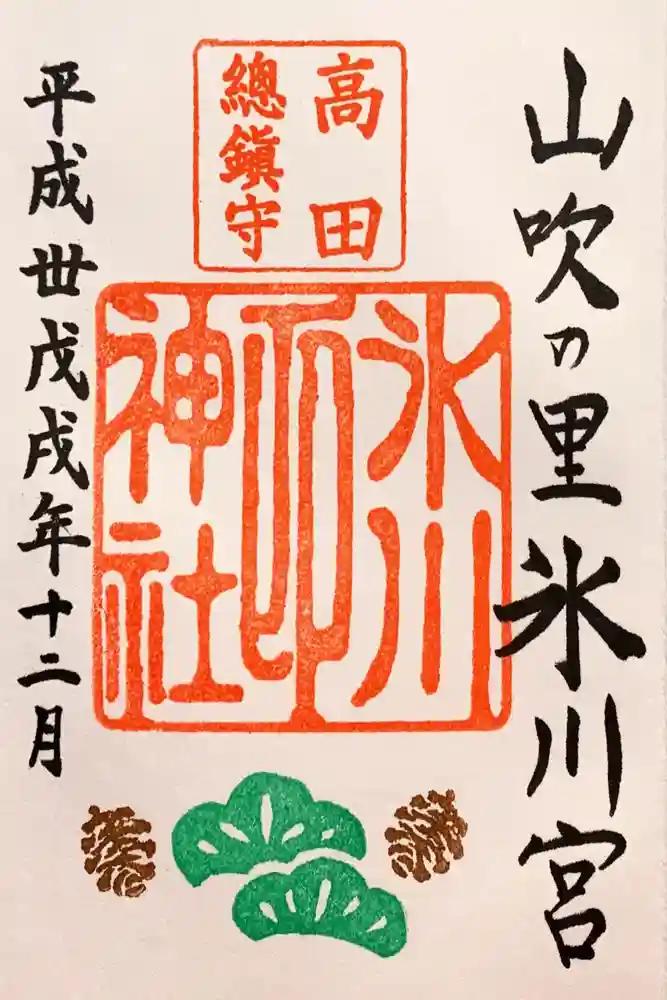 山吹の里氷川宮
高田
總鎮守
氷川
印
神社
平成卅戊戌年十二月